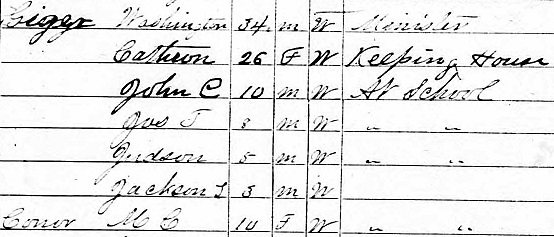 Washington 34 m W Minister
Cathron 26 F W Keeping House
John C 10 m W At School
Jos T 8 m W " "
Judson 5 m W " "
Jackson L 3 m W
Conor M C 10 F W " "